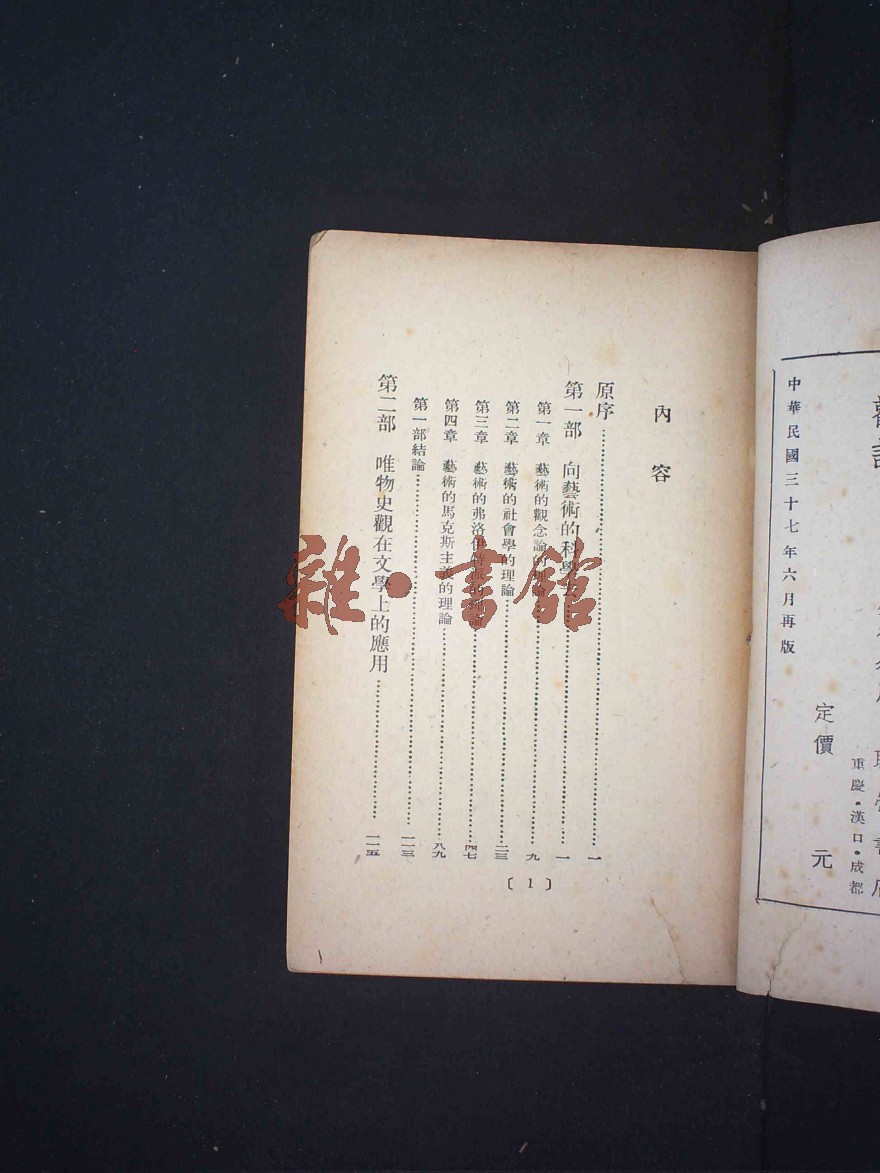 重慶・漢口・成都
定價 元
中華民國三十七年六月再版
內容
原序……一
第一部 向藝術的科學……一
第一章 藝術的觀念論的理論……九
第二章 藝術的社會學的理論……二三
第三章 藝術的弗洛伊特派的理論……四七
第四章 藝術的馬克斯主義的理論……八九
第一部結論……一一三
第二部 唯物史觀在文學上的應用……一一五
〔1〕
雜·書館